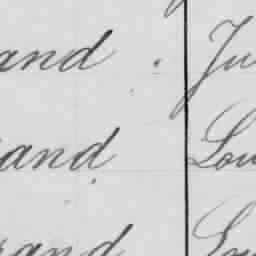 and . Ju
and Lou
and Lou